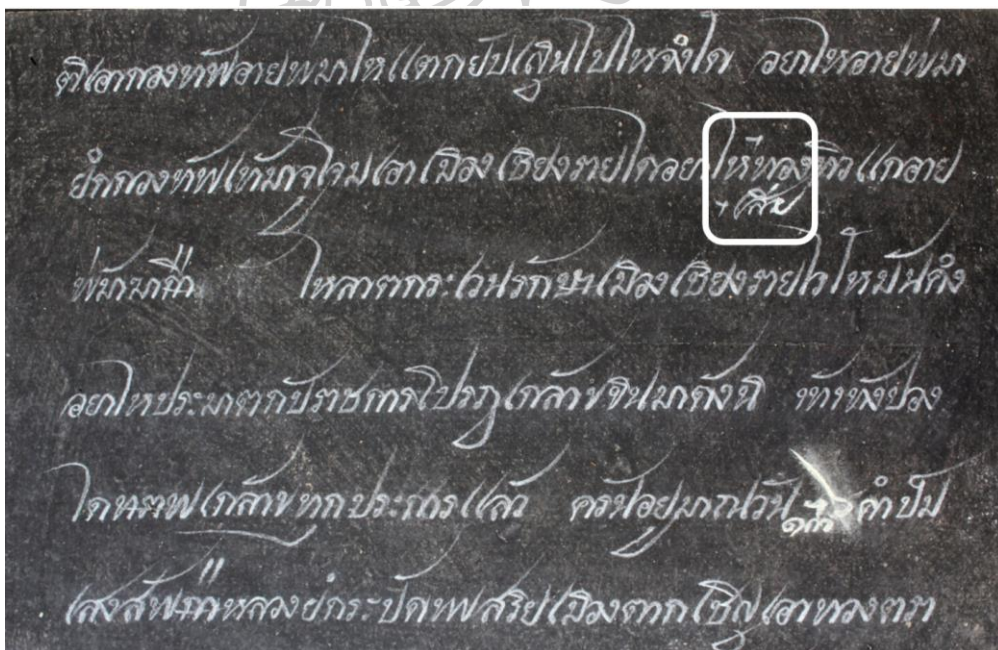 ตีเอากองทัพอายพมาใหแตกยับเสินไปใหจํงใด อยาใหอายพมา
ยํกกองทัพเขามาจูโจมเอาเมืองเชียงรายใดอยาใหทองทีวแกอาย
เสีย
พมามา ใหลาตกระเวนรักษาเมืองเชียงรายไวใหมันคํง
อยาใหประมาตกับราชการโปรฎเกลาฯขึนมาดังนี ขาทังปวง
ใด เกลาฯทุกประการแลว ครันอยูมาณวัน คำ ปีม
เสงสัพ หลวงยํกระบัด เมืองตากเชิญเอาทองตรา